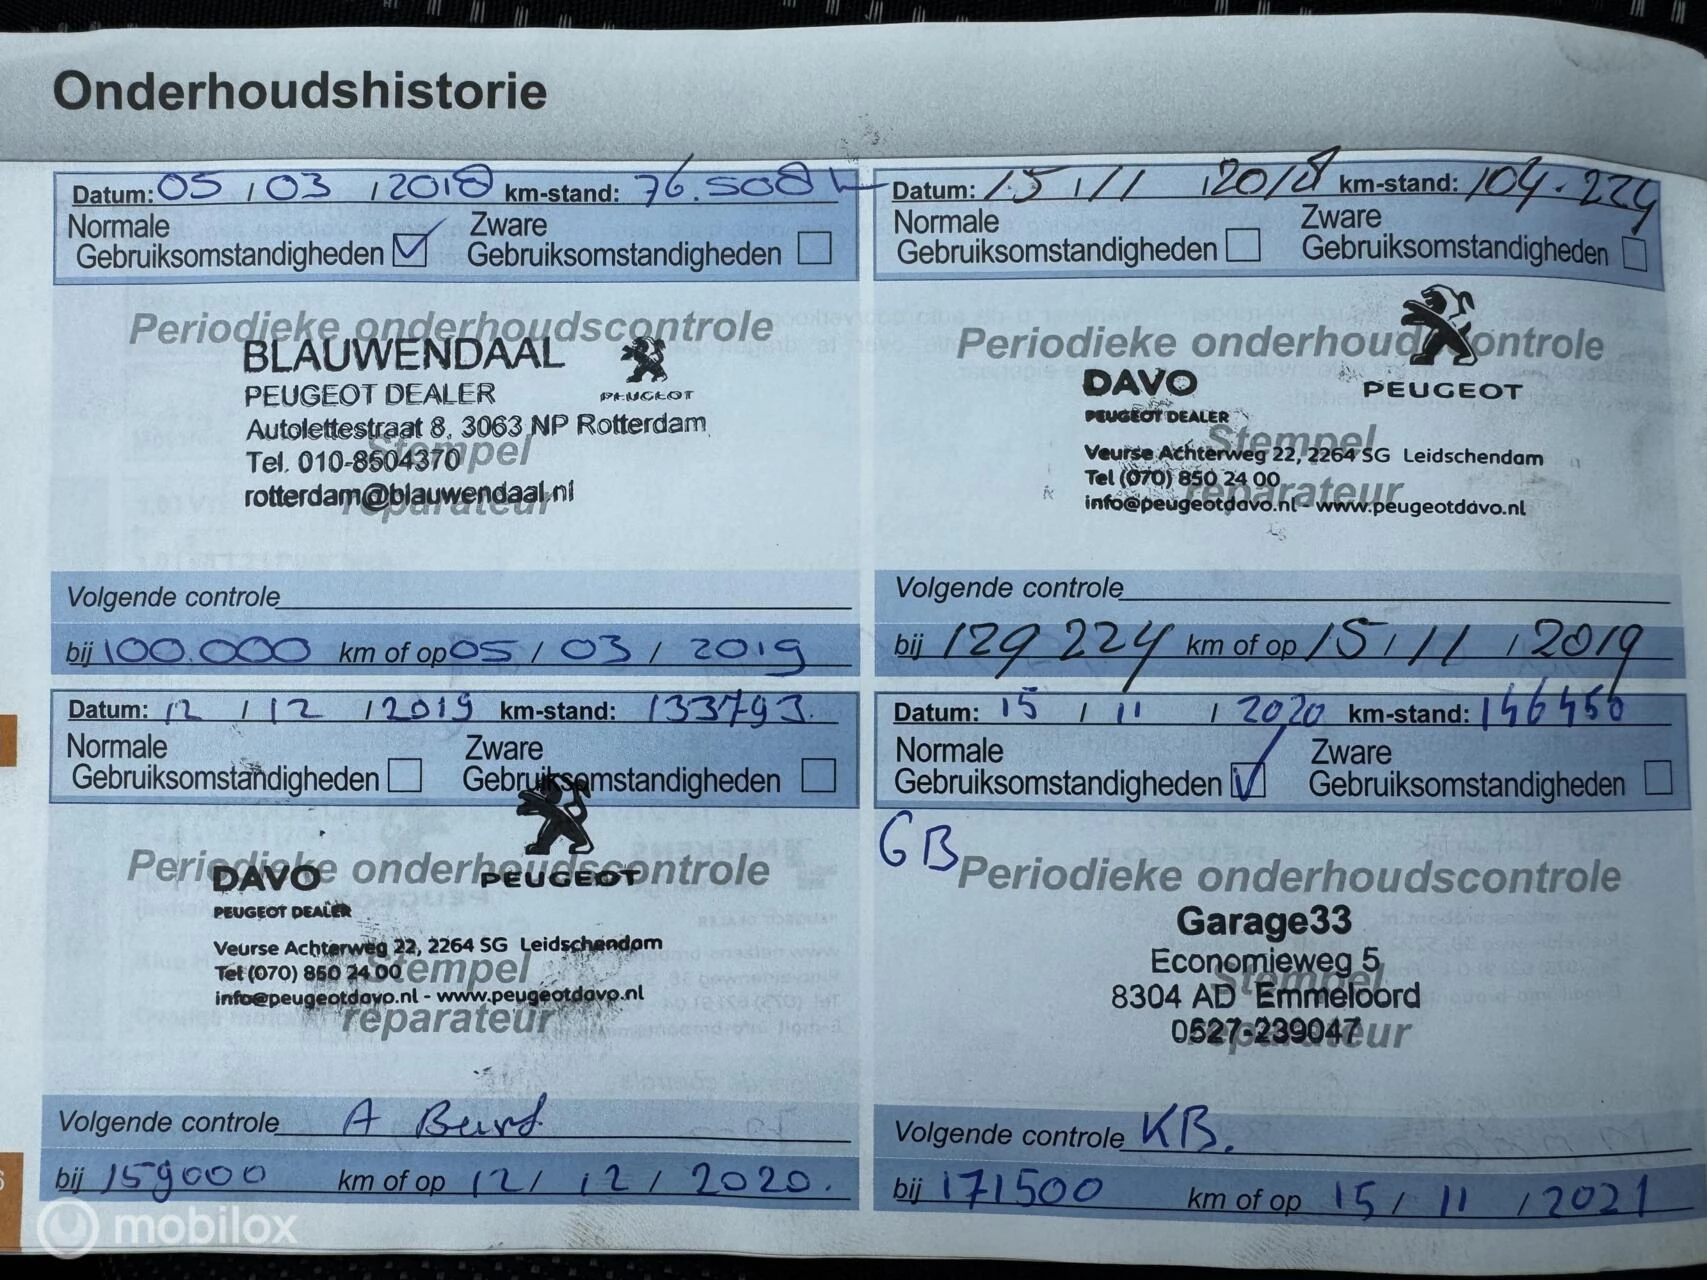 Onderhoudshistorie
Datum: 05 / 03 / 2018 km-stand: 76.508
Normale Gebruiksomstandigheden
Zware Gebruiksomstandigheden
Periodieke onderhoudscontrole
BLAUWENDAAL
PEUGEOT DEALER
PEUGEOT
Autolettestraat 8, 3063 NP Rotterdam
Tel. 010-8504370
Stempel
rotterdam@blauwendaal.nl
reparateur
Volgende controle
bij 100.000 km of op 05 / 03 / 2019
Datum: 15 / 11 / 2018 km-stand: 104.224
Normale Gebruiksomstandigheden
Zware Gebruiksomstandigheden
Periodieke onderhoudscontrole
DAVO
PEUGEOT
PEUGEOT DEALER
Stempel
Veurse Achterweg 22, 2264 SG Leidschendam
Tel (070) 850 24 00
reparateur
info@peugeotdavo.nl - www.peugeotdavo.nl
Volgende controle
bij 129 224 km of op 15 / 11 / 2019
Datum: 12 / 12 / 2019 km-stand: 133793.
Normale Gebruiksomstandigheden
Zware Gebruiksomstandigheden
Periodieke onderhoudscontrole
DAVO
PEUGEOT
PEUGEOT DEALER
Veurse Achterweg 22, 2264 SG Leidschendam
Tel (070) 850 24 00
Stempel
info@peugeotdavo.nl - www.peugeotdavo.nl
reparateur
Volgende controle A Beurt
bij 159000 km of op 12 / 12 / 2020.
Datum: 15 / 11 / 2020 km-stand: 146450
Normale Gebruiksomstandigheden
Zware Gebruiksomstandigheden
GB
Periodieke onderhoudscontrole
Garage33
Economieweg 5
Stempel
8304 AD Emmeloord
0527-239047
reparateur
Volgende controle KB.
bij 171500 km of op 15 / 11 / 2021
mobilox